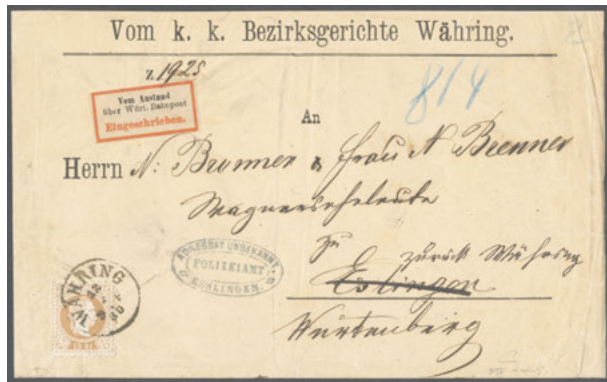 Vom k. k. Bezirksgerichte Währing.
Z. 1925
Vom Ausland
über Württ. Bahnpost
Eingeschrieben.
8/4
An
Herrn N: Brenner & Frau N Brenner
Wagnerseheleute
zu zurück Währing
Eslingen
Würtenberg
ADRESSAT UNBEKANNT
POLIZEIAMT
ESSLINGEN
WÄHRING